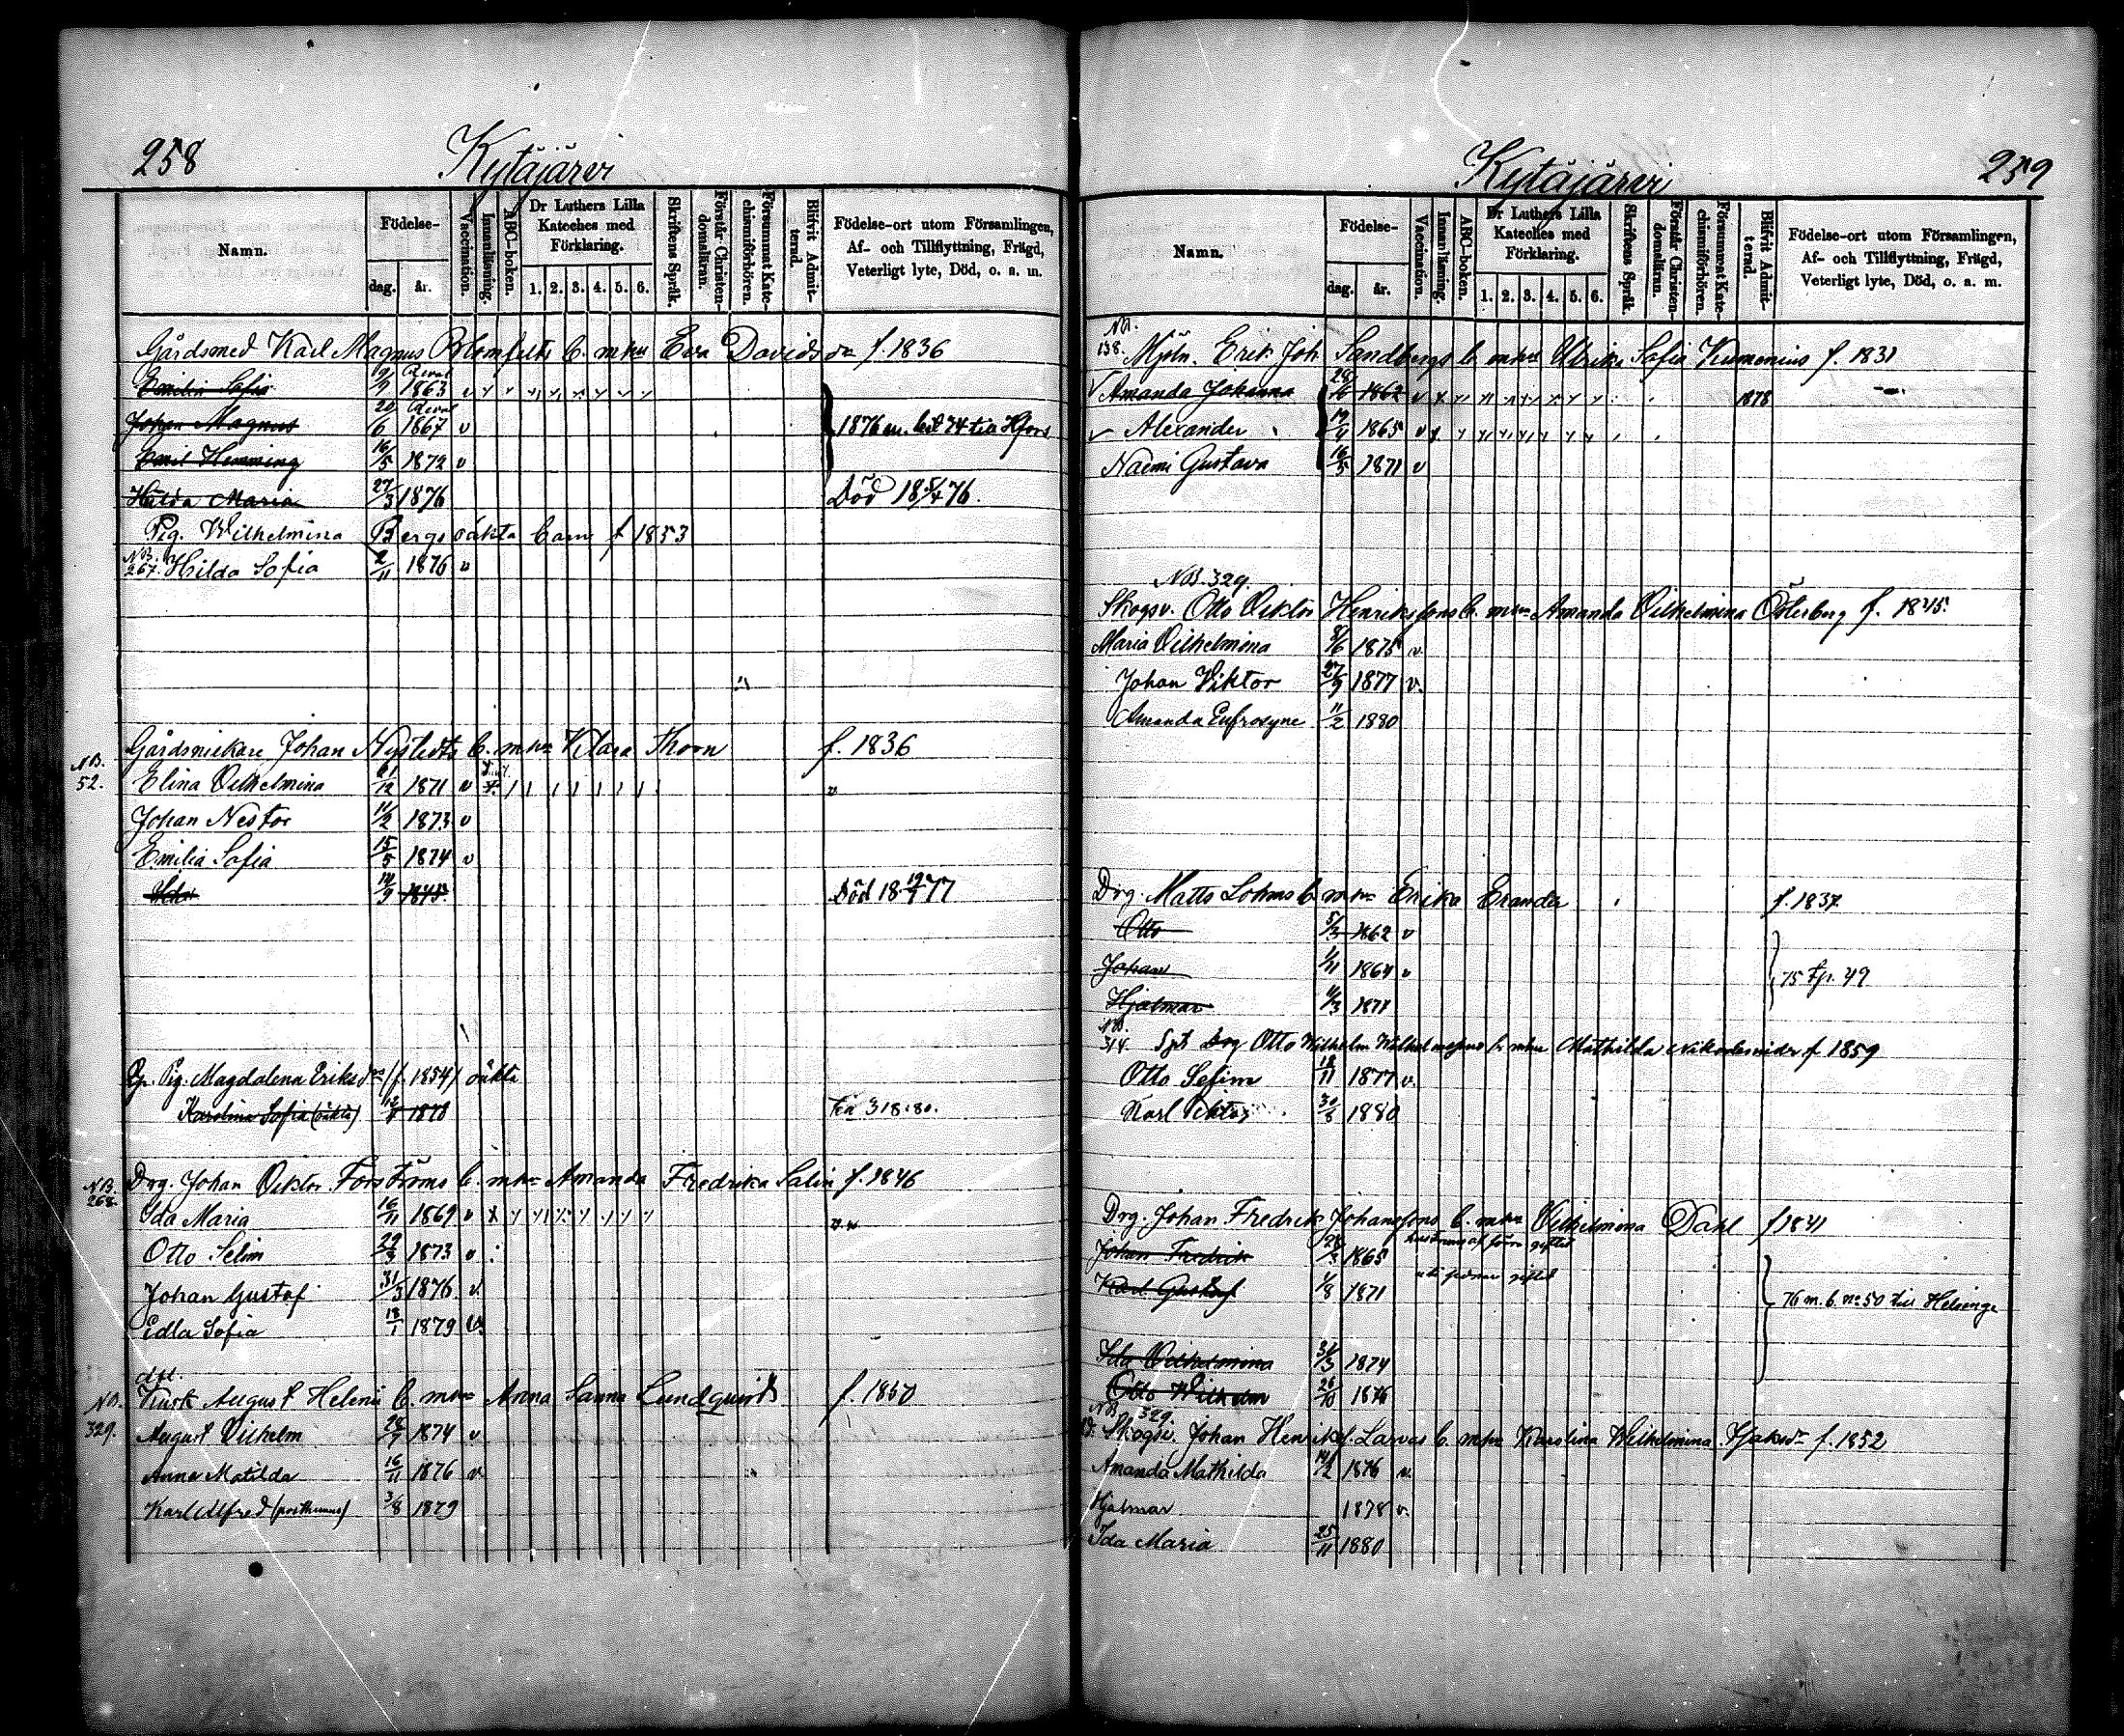 258
Kytäjärvi
Namn.
Födelse-
dag.
år.
Vaccination.
Innanläsning.
ABC-boken.
Dr Luthers Lilla Kateches med Förklaring.
1. 2. 3. 4. 5. 6.
Skriftens Språk.
Förstår Christendomsläran.
Försummat Katechismiförhören.
Blifvit Admitterad.
Födelse-ort utom Församlingen,
Af- och Tillflyttning, Frägd,
Veterligt lyte, Död, o. a. m.
Gårdsmed Karl Magnus Blomfelts b. m. hu Eva Davidsdr f. 1836
Emilia Sofia 1863 v
Johan Magnus 20/6 1867 v 1876 m. bet 74 till Hfors
Emil Hemming 16/5 1872 v
Hilda Maria 27/3 1876 Död 18 5/4 76.
Pig. Wilhelmina Bergs oäkta barn f 1853
NB. 267. Hilda Sofia 2/11 1876 v
Gårdsnickare Johan Nystedts b. m. hu Klara Thorn f. 1836
NB. 52. Elina Vilhelmina 1871 v
Johan Nestor 11/2 1873 v
Emilia Sofia 15/5 1874 v
1875 Död 18 77
Pig. Magdalena Eriksdr (f. 1854) oäkta
Karolina Sofia (oäkta) 1878 318.80.
NB. 268. Drg. Johan Viktor Forsströms b. m. hu Amanda Fredrika Salin f. 1846
Ida Maria 16/11 1869 v
Otto Selim 29/3 1873 v
Johan Gustaf 31/3 1876 v.
Edla Sofia 18/1 1879 v.
NB. 329. Kusk August Helenii b. m. hu Anna Sanna Lundqvist f. 1850
August Vilhelm 28/7 1874 v
Anna Matilda 16/11 1876 v
Karl Alfred (posthumus) 3/8 1879
Kytäjärvi
259
Namn.
Födelse-
dag.
år.
Vaccination.
Innanläsning.
ABC-boken.
Dr Luthers Lilla Kateches med Förklaring.
1. 2. 3. 4. 5. 6.
Skriftens Språk.
Förstår Christendomsläran.
Försummat Katechismiförhören.
Blifvit Admitterad.
Födelse-ort utom Församlingen,
Af- och Tillflyttning, Frägd,
Veterligt lyte, Död, o. a. m.
NB. 138. Mjöln. Erik Joh Sandbergs b. m. hu Ulrika Sofia Kumenius f. 1831
Amanda Johanna 1862 v 1878
Alexander 1865 v
Naëmi Gustava 16/5 1871 v
NB. 329
Skogsv. Otto Viktor Henrikssons b. m. hu Amanda Vilhelmina Österberg f. 1845.
Maria Vilhelmina 8/6 1875 v.
Johan Viktor 27/9 1877 v.
Amanda Eufrosyne 11/2 1880
Drg. Matts Lohms b. m. hu Erika Erander f. 1837
Otto 5/3 1862 v
Johan 1/11 1864 v 75 Fp. 49
Hjalmar 11/3 1871
NB. 314. Drg Otto Wilhelm Wilhelmssons b. m. hu Mathilda Nikodemidr f 1859
Otto Selim 18/11 1877 v.
Karl Viktor 30/8 1880
Drg. Johan Fredrik Johanssons b. m. hu Vilhelmina Dahl f 1841
Johan Fredrik 1865
Karl Gustaf 1/8 1871 76 m. b. no 50 till Helsinge
Ida Vilhelmina 1874
Otto Wilhelm 28/10 1876
NB. 329. Skogsv. Johan Henrikss. Larvas b. m. hu Karolina Wilhelmina Isaksdr f. 1852
Amanda Mathilda 14/2 1876 v.
Hjalmar 1878 v.
Ida Maria 25/11 1880